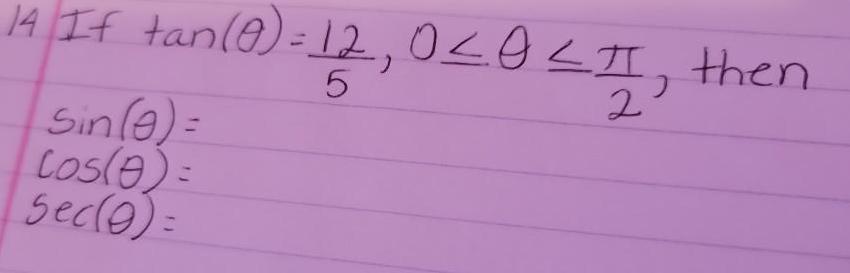 14 If tan(θ) = 12/5, 0 ≤ θ ≤ π/2, then
sin(θ) =
cos(θ) =
sec(θ) =